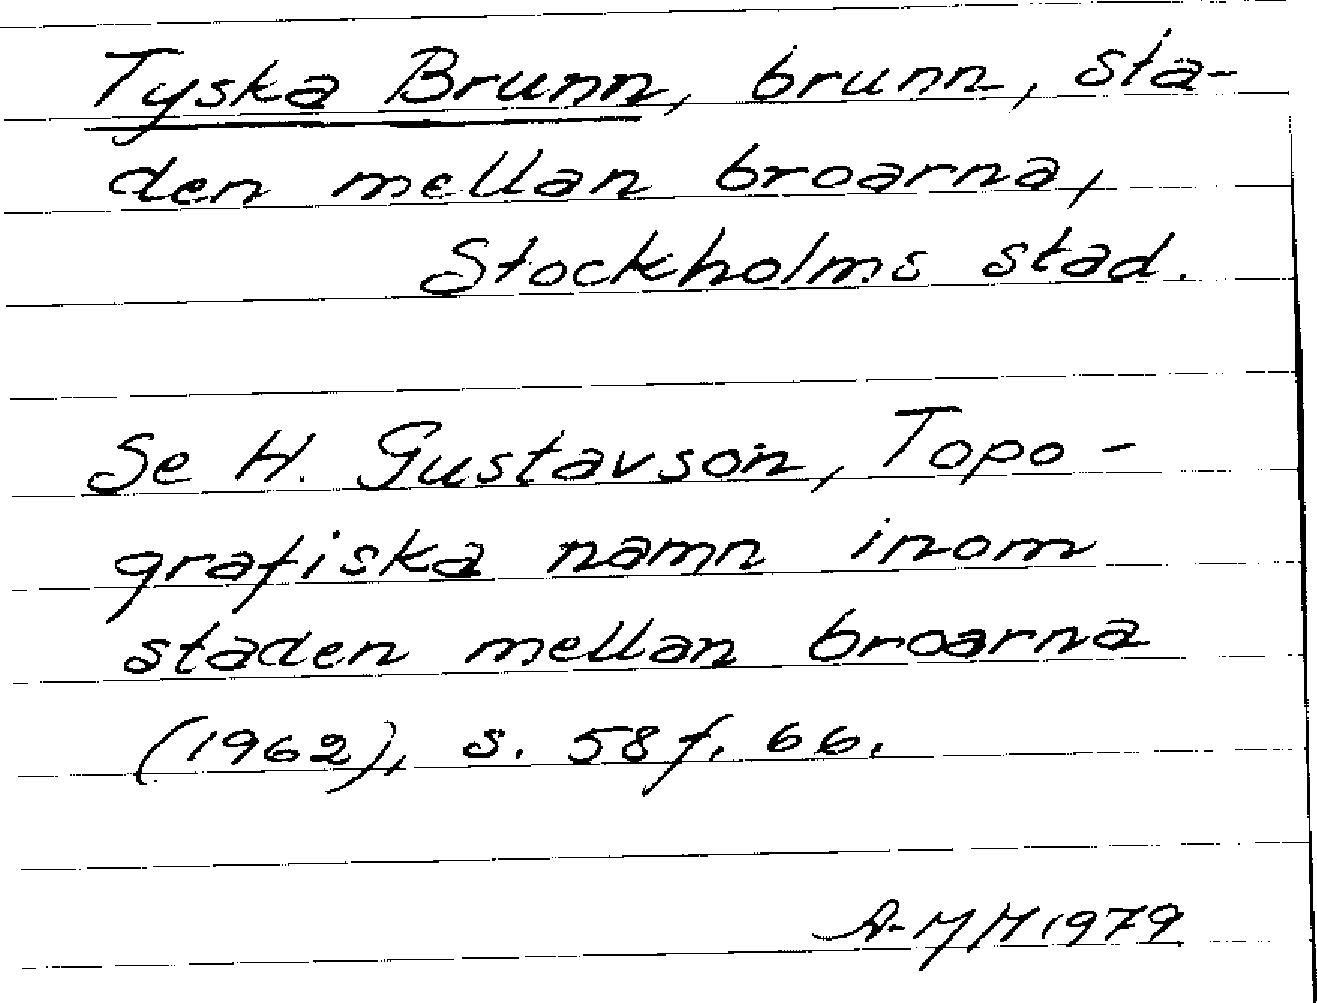 Tyska Brunn, brunn, sta-
den mellan broarna,
Stockholms stad.
Se H. Gustavson, Topo-
grafiska namn inom
staden mellan broarna
(1962), s. 58 f. 66.
A-MH 1979